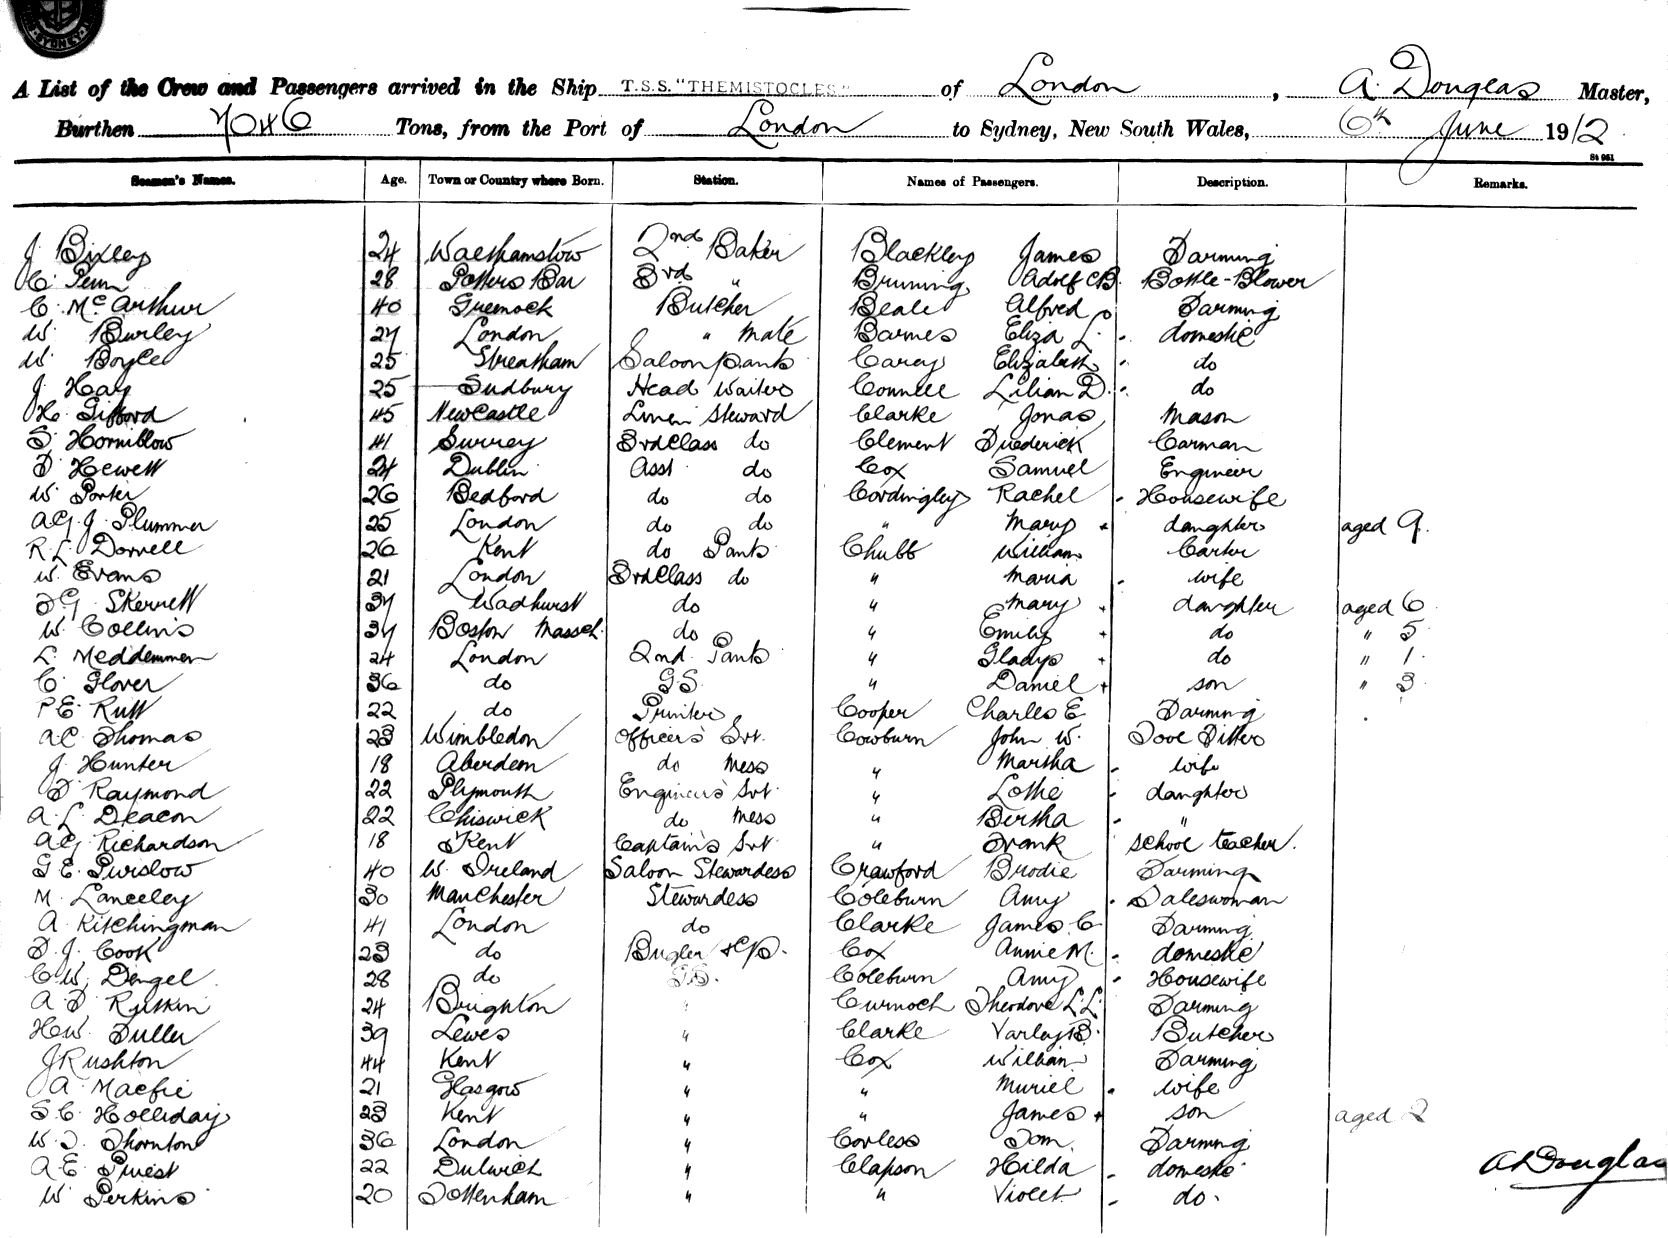 SYDNEY
A List of the Crew and Passengers arrived in the Ship T.S.S. "THEMISTOCLES" of London, A. Douglas Master,
Burthen 7046 Tons, from the Port of London to Sydney, New South Wales, 6th June 1912
St 961
Seamen's Names. Age. Town or Country where Born. Station. Names of Passengers. Description. Remarks.
J. Bixley 24 Walthamstow 2nd Baker Blackley James Farming
C. Penn 28 Potters Bar 3rd " Bruning Adolf C.B. Bottle-Blower
C. McArthur 40 Greenock Butcher Beale Alfred Farming
W. Burley 27 London " mate Barnes Eliza L. - domestic
W. Boyce 25 Streatham Saloon Pants Carey Elizabeth - do
J. Hay 25 Sudbury Head Waiter Connell Lilian D. - do
H. Gifford 45 Newcastle Linen Steward Clarke Jonas Mason
S. Horniblow 41 Surrey 3rd Class do Clement Frederick Carman
F. Hewett 24 Dublin Asst do Cox Samuel Engineer
W. Porter 26 Bedford do do Cordingley Rachel - Housewife
A.G.J. Plummer 25 London do do " Mary + daughter aged 9.
R.L. Dorrell 26 Kent do Pants Chubb William Carter
W. Evans 21 London 3rd Class do " Maria - wife
F.G. Skerrett 37 Wadhurst do " Mary + daughter aged 6
W. Collins 37 Boston Massch. do " Emily + do " 5
L. Meddemmen 24 London 2nd Pants " Gladys + do " 1.
C. Glover 36 do G.S. " Daniel + son " 3
P.E. Rutt 22 do Printer Cooper Charles E. Farming
A.C. Thomas 23 Wimbledon Officers' Svt. Cowburn John W. Tool Fitter
J. Hunter 18 Aberdeen do Mess " Martha - wife
F. Raymond 22 Plymouth Engineers' Svt. " Lottie - daughter
A.L. Deacon 22 Chiswick do Mess " Bertha - "
A.G. Richardson 18 Kent Captain's Svt " Frank School teacher.
G.E. Purslow 40 W. Ireland Saloon Stewardess Crawford Brodie Farming
M. Lanceley 30 Manchester Stewardess Coleburn Amy - Saleswoman
A. Kitchingman 41 London do Clarke James C. Farming
F.J. Cook 23 do Bugler Cox Annie M. - domestic
C.W. Dengel 28 do G.S. Coleburn Amy - Housewife
A.F. Rutkin 24 Brighton " Curnoch Theodore L.L. Farming
H.W. Fuller 39 Lewes " Clarke Varley B. Butcher
J. Rushton 44 Kent " Cox William Farming
A. Macfie 21 Glasgow " " Muriel - wife
S.C. Holliday 23 Kent " " James + son aged 2
W.T. Thornton 36 London " Corless Tom. Farming
A.E. Priest 22 Dulwich " Clapson Hilda - domestic
W. Perkins 20 Tottenham " " Violet - do.
A. Douglas